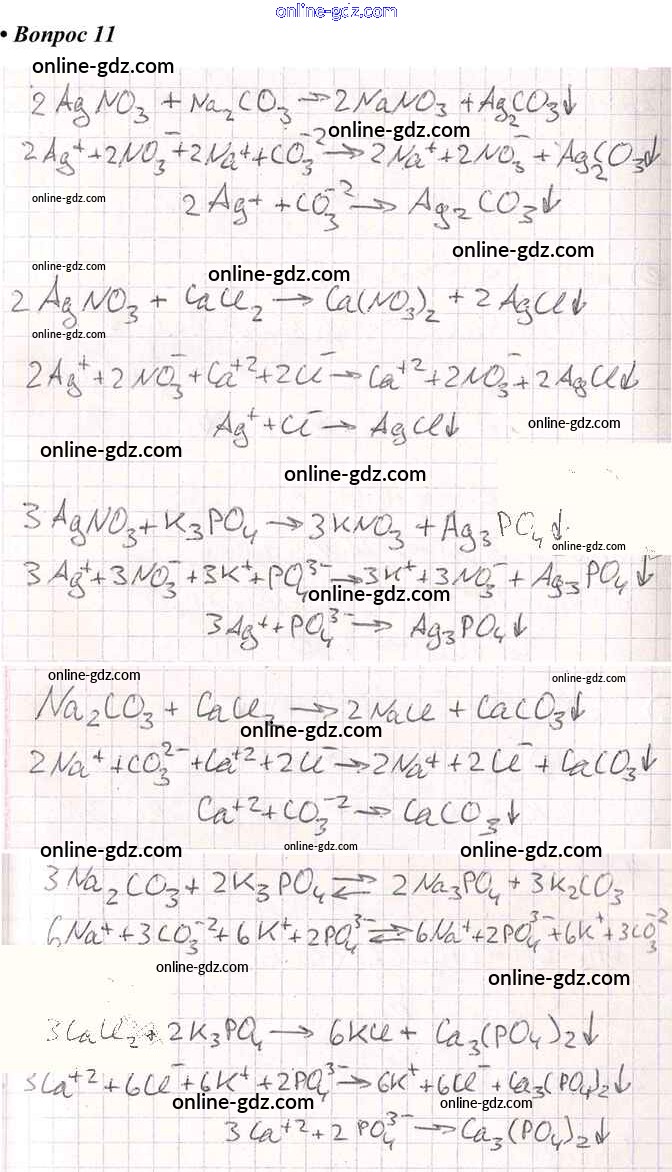 online-gdz.com
• Вопрос 11
online-gdz.com
2AgNO₃ + Na₂CO₃ → 2NaNO₃ + Ag₂CO₃↓
online-gdz.com
2Ag⁺ + 2NO₃⁻ + 2Na⁺ + CO₃⁻² → 2Na⁺ + 2NO₃⁻ + Ag₂CO₃↓
online-gdz.com
2Ag⁺ + CO₃⁻² → Ag₂CO₃↓
online-gdz.com
online-gdz.com
online-gdz.com
2AgNO₃ + CaCl₂ → Ca(NO₃)₂ + 2AgCl↓
online-gdz.com
2Ag⁺ + 2NO₃⁻ + Ca⁺² + 2Cl⁻ → Ca⁺² + 2NO₃⁻ + 2AgCl↓
Ag⁺ + Cl⁻ → AgCl↓
online-gdz.com
online-gdz.com
online-gdz.com
3AgNO₃ + K₃PO₄ → 3KNO₃ + Ag₃PO₄↓
online-gdz.com
3Ag⁺ + 3NO₃⁻ + 3K⁺ + PO₄³⁻ → 3K⁺ + 3NO₃⁻ + Ag₃PO₄↓
online-gdz.com
3Ag⁺ + PO₄³⁻ → Ag₃PO₄↓
online-gdz.com
online-gdz.com
Na₂CO₃ + CaCl₂ → 2NaCl + CaCO₃↓
online-gdz.com
2Na⁺ + CO₃²⁻ + Ca⁺² + 2Cl⁻ → 2Na⁺ + 2Cl⁻ + CaCO₃↓
Ca⁺² + CO₃⁻² → CaCO₃↓
online-gdz.com
online-gdz.com
online-gdz.com
3Na₂CO₃ + 2K₃PO₄ ⇄ 2Na₃PO₄ + 3K₂CO₃
6Na⁺ + 3CO₃⁻² + 6K⁺ + 2PO₄³⁻ ⇄ 6Na⁺ + 2PO₄³⁻ + 6K⁺ + 3CO₃⁻²
online-gdz.com
online-gdz.com
3CaCl₂ + 2K₃PO₄ → 6KCl + Ca₃(PO₄)₂↓
3Ca⁺² + 6Cl⁻ + 6K⁺ + 2PO₄³⁻ → 6K⁺ + 6Cl⁻ + Ca₃(PO₄)₂↓
online-gdz.com
online-gdz.com
3Ca⁺² + 2PO₄³⁻ → Ca₃(PO₄)₂↓